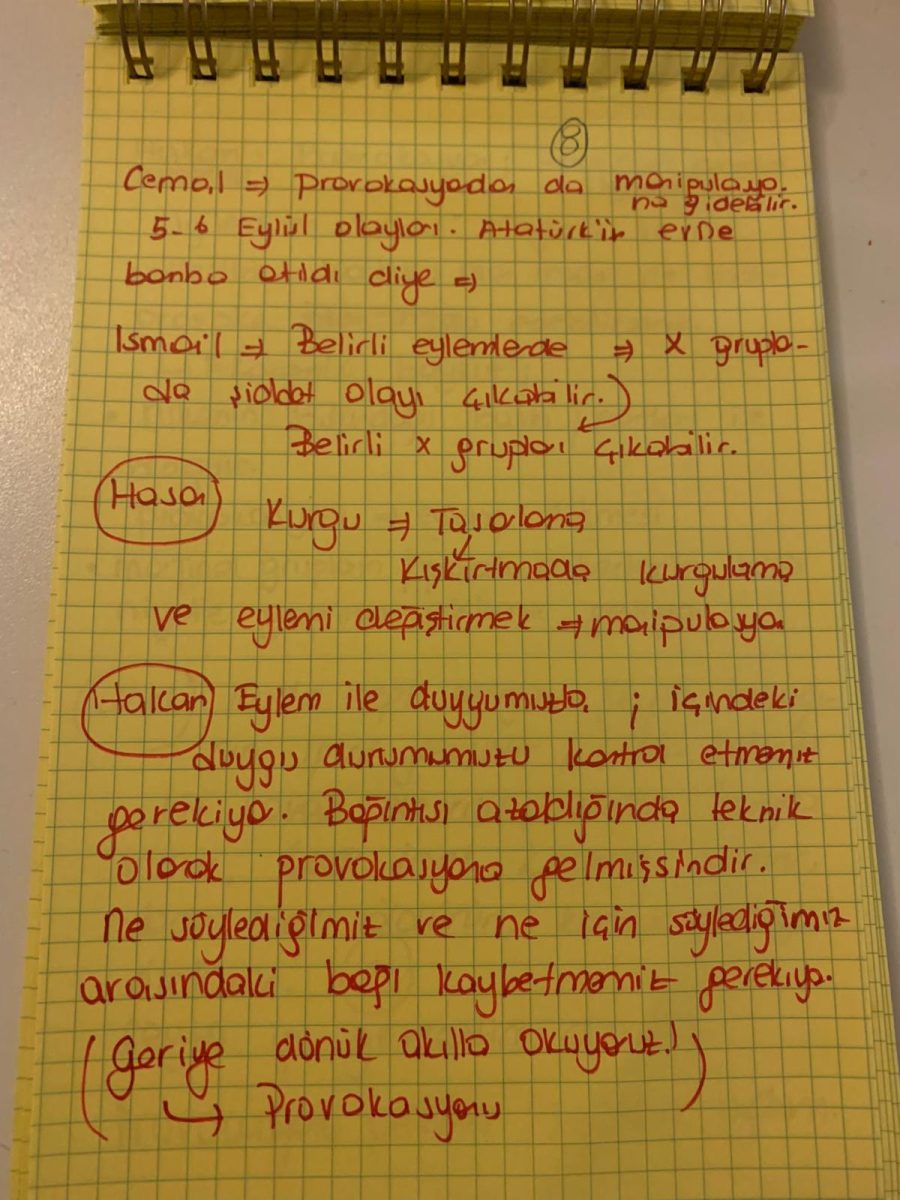 8
Cemal => provokasyondan da manipulasyo.
na gidebilir.
5-6 Eylül olayları. Atatürk'ün evne
bonba atıldı diye =>
Ismail => Belirli eylemlerde => X grupla-
da şiddet olayı çıkabilir.
Belirli X grupları çıkabilir.
Hasan
Kurgu => Tasalama
Kışkırtmada kurgulama
ve eylemi değiştirmek => manipulasyon
Hakan Eylem ile duyyumuzla. ; içindeki
duygu durumumuzu kontrol etmemiz
gerekiyo. Bağıntısı azaldığında teknik
olarak provokasyona gelmişsindir.
Ne söylediğimiz ve ne için söylediğimiz
arasındaki bağı kaybetmemiz gerekiyo.
(Geriye dönük akılla okuyoruz.!)
↳ Provokasyonu